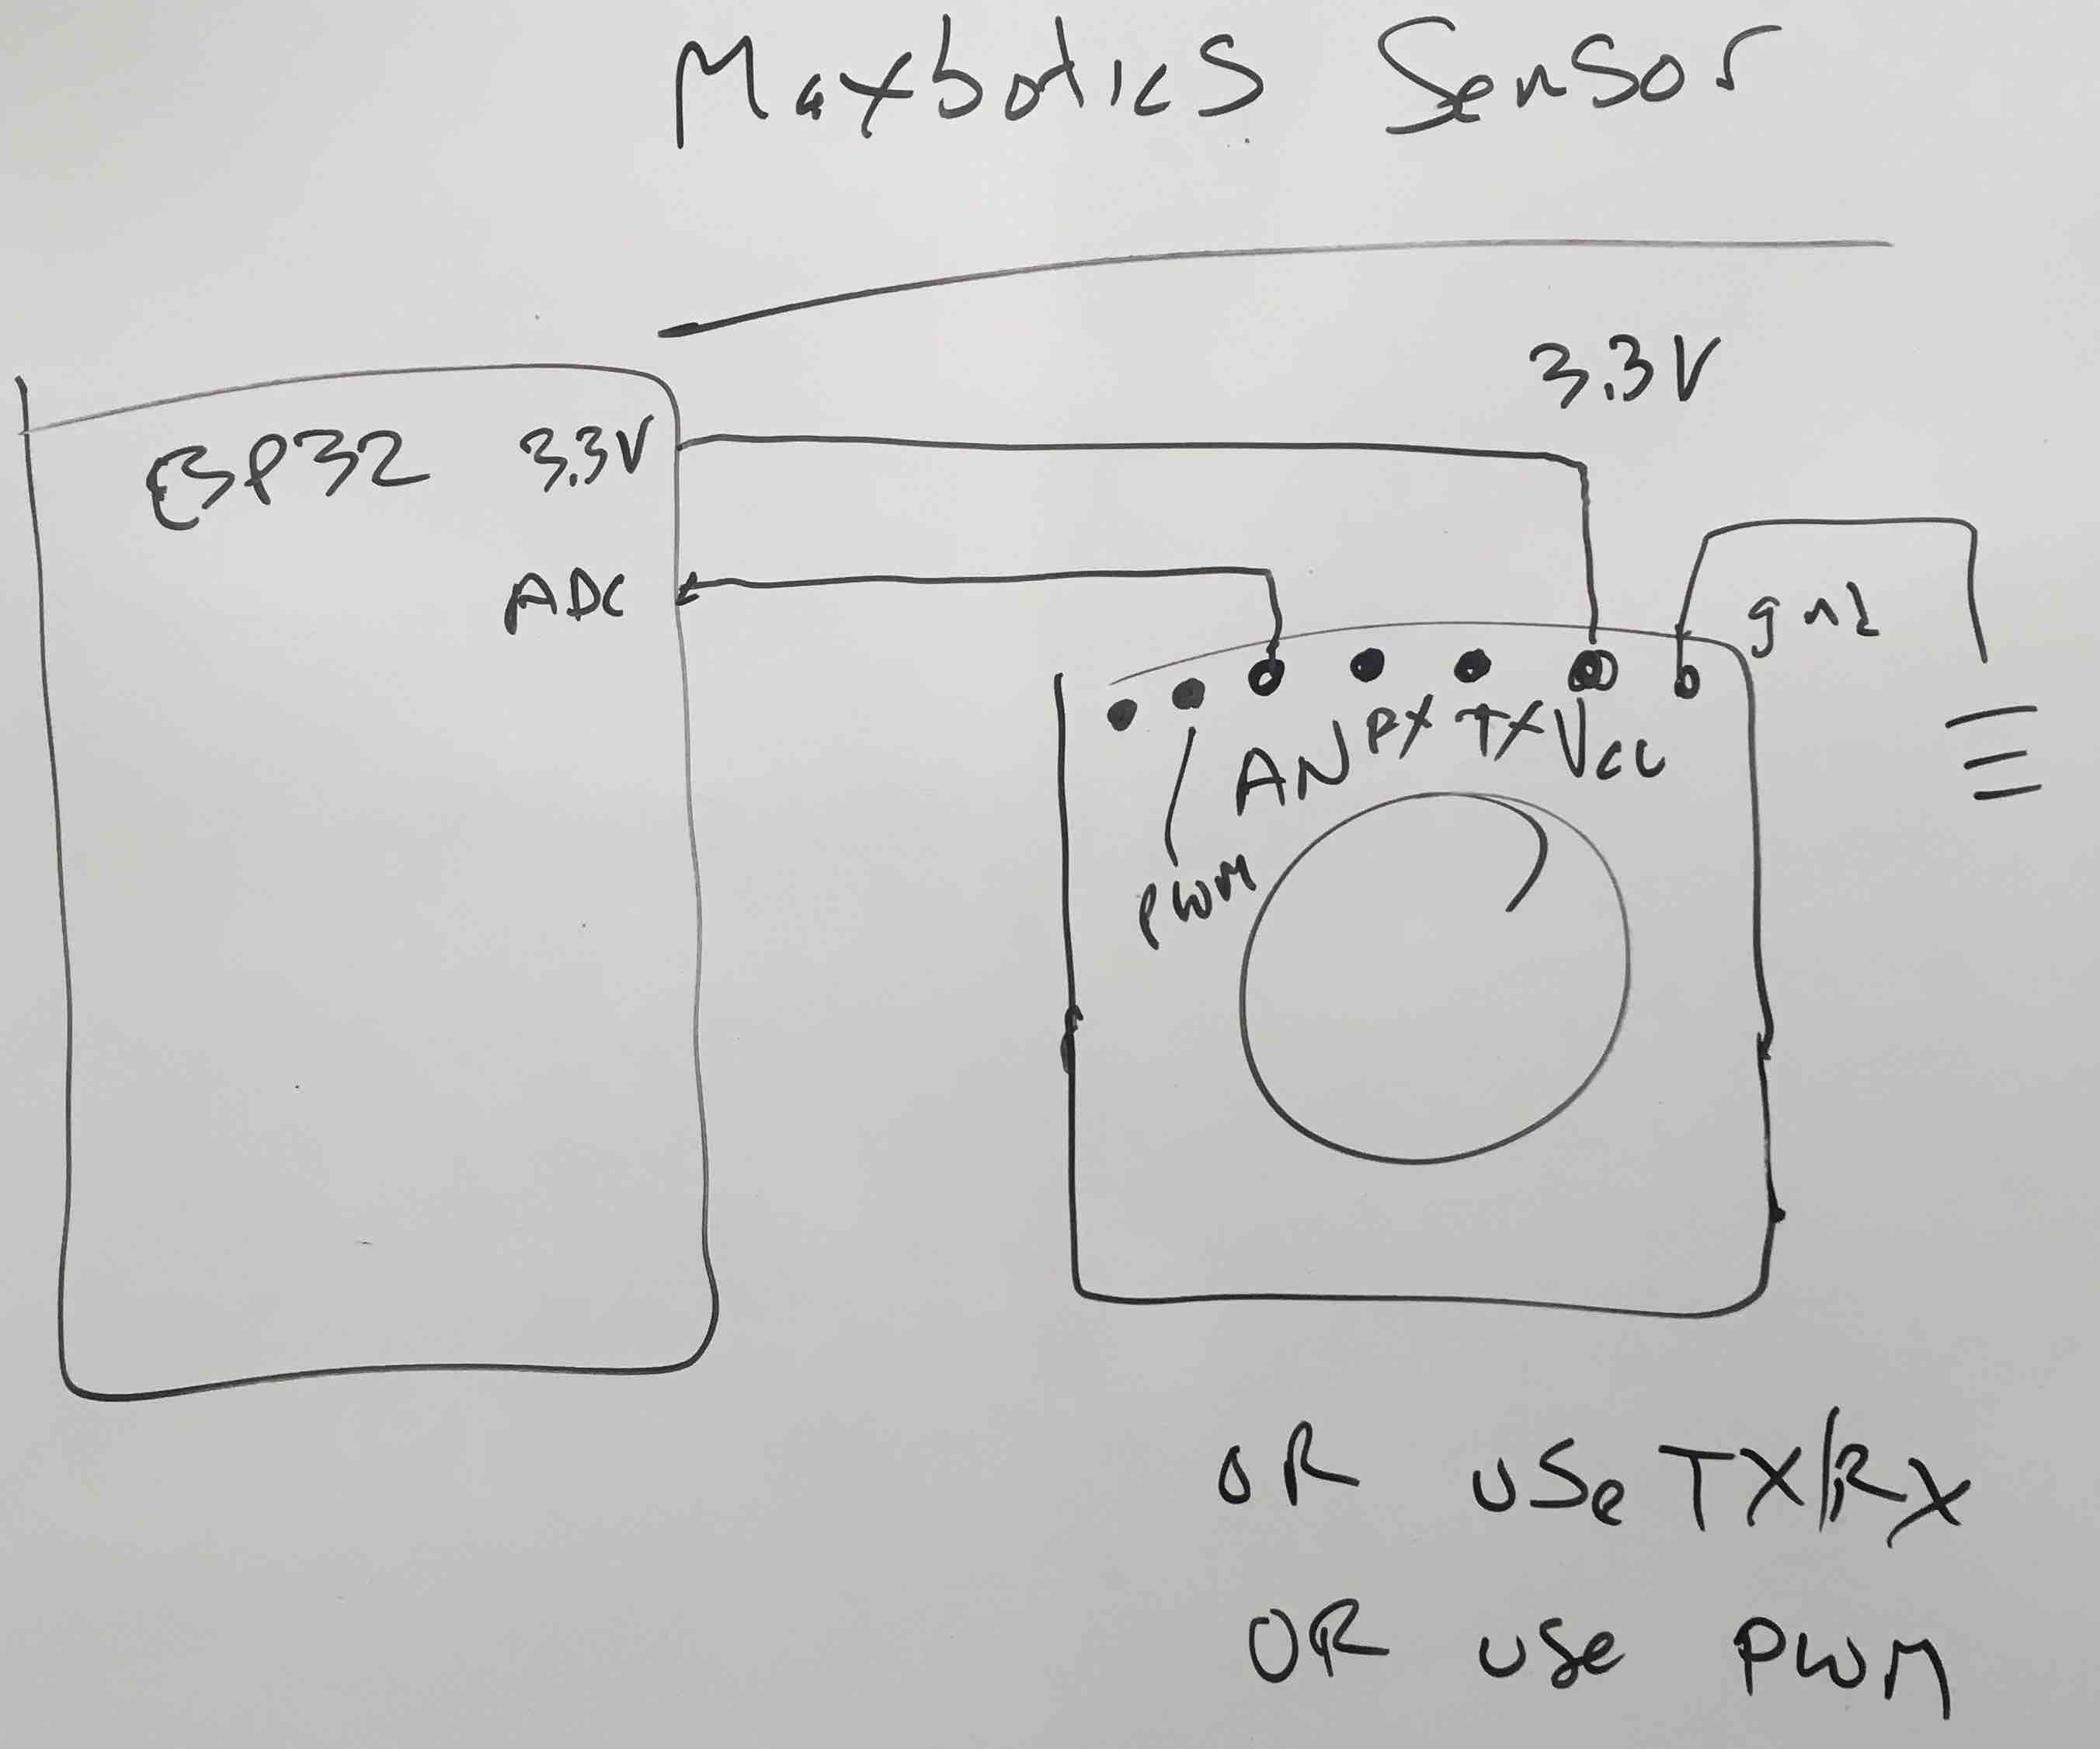 Maxbotics Sensor
3.3V
ESP32 3.3V
ADC
gnd
AN RX TX Vcc
PWM
OR use TX/RX
OR use PWM